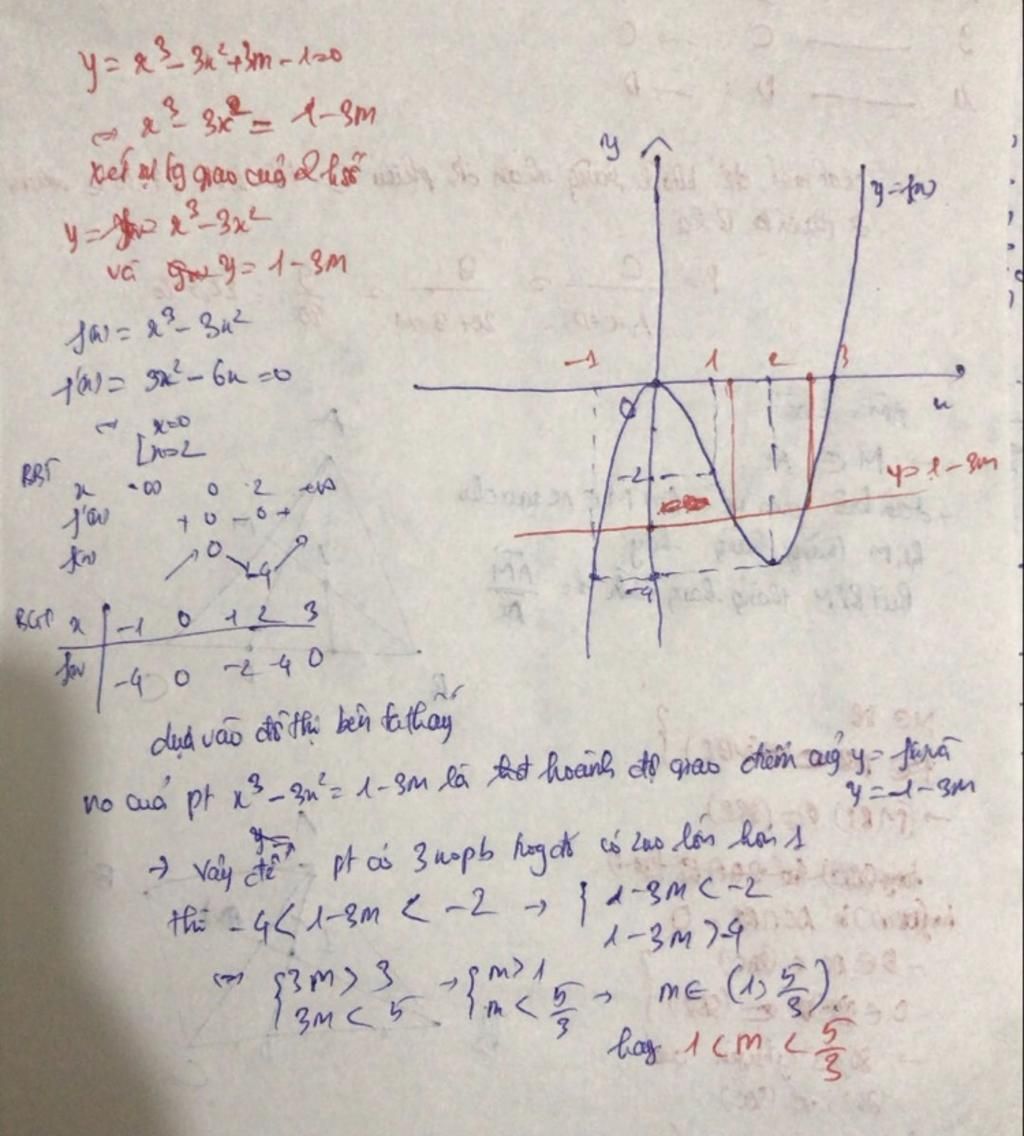 y = x³ - 3x² + 3m - 1 = 0
⇔ x³ - 3x² = 1 - 3m
xét sự tg giao của 2 hsố
y = x³ - 3x²
và y = 1 - 3m
f(x) = x³ - 3x²
f'(x) = 3x² - 6x = 0
⇔ [ x = 0
x = 2
BBT
x -∞ 0 2 +∞
f'(x) + 0 - 0 +
f(x) 0 -4
BGT x -1 0 1 2 3
f(x) -4 0 -2 -4 0
y
y = f(x)
-1 1 2 3
0 x
-2
y = 1 - 3m
-4
dựa vào đồ thị bên ta thấy
no của pt x³ - 3x² = 1 - 3m là hoành độ giao điểm của y = f(x) và
y = 1 - 3m
→ vậy để pt có 3 nopb trong đó có 2no lớn hơn 1
thì -4 < 1 - 3m < -2 → { 1 - 3m < -2
1 - 3m > -4
⇔ { 3m > 3 → { m > 1
3m < 5 m < 5/3 → m ∈ (1; 5/3)
hay 1 < m < 5/3